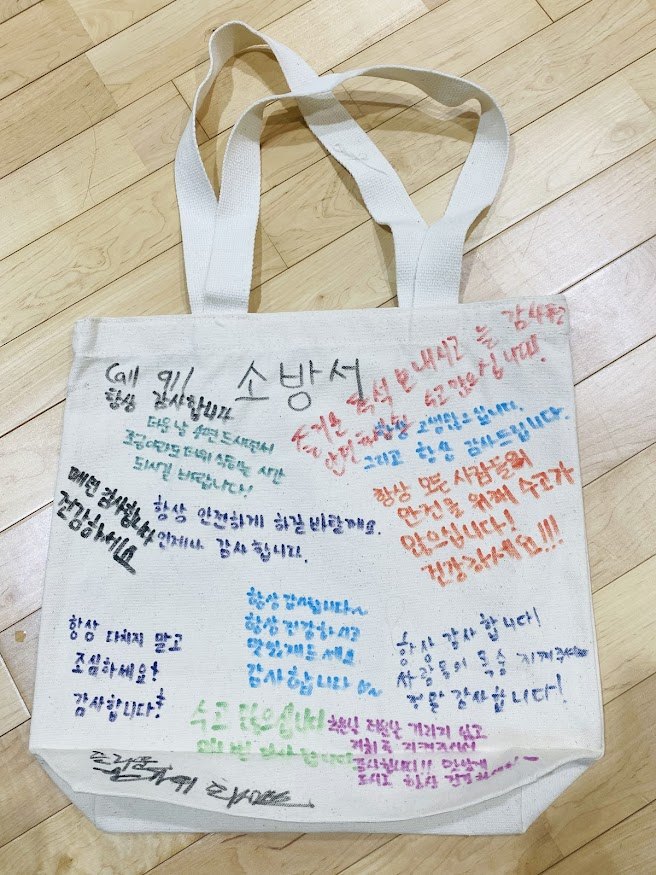 Call 911 소방서
항상 감사합니다
즐거운 추석 보내시고 늘 감사한
수고 많으십니다!
더운 날 음료 드시면서
조금이라도 더위 식히는 시간
되시길 바랍니다!
항상 고생많으십니다.
그리고 항상 감사드립니다.
매번 감사합니다
건강하세요
항상 안전하게 하길 바랄게요.
언제나 감사합니다.
항상 모든 사람들의
안전을 위해 수고가
많으십니다!
건강하세요!!!
항상 감사합니다~
항상 건강하시고
맛있게 드세요
감사합니다
항상 다치지 말고
조심하세요!
감사합니다!
항상 감사합니다!
사람들의 목숨 지켜주셔서
정말 감사합니다!
수고 많으십니다
거리지 않고
저희를 지켜주셔서
감사합니다!! 맛있게
드시고 항상 건강하세요~